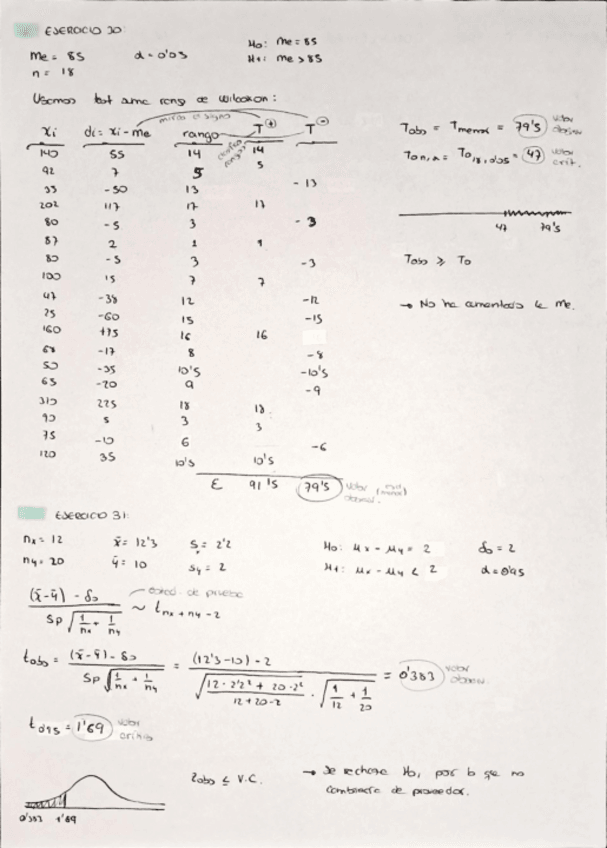 EJERCICIO 30:
Me = 85 α = 0'05 H0: Me = 85
n = 18 H1: Me > 85
Usamos test suma rang de Wilcoxon:
miro el signo
xi di = xi - me rango T⊕ T⊖
140 55 14 14
92 7 5 5
33 -50 13 - 13
202 117 17 17
80 -5 3 - 3
87 2 1 1
80 -5 3 -3
100 15 7 7
47 -38 12 -12
25 -60 15 -15
160 +75 16 16
68 -17 8 -8
50 -35 10'5 -10's
65 -20 9 -9
310 225 18 18
90 5 3 3
75 -10 6 -6
120 35 10's 10's
Σ 91's 79's valor observ. (menor)
Tobs = Tmenor = 79's valor observ
To n,α = To 18,0'05 = 47 valor crít.
47 79's
Tobs ≥ To
→ No ha aumentado la Me.
EJERCICIO 31:
nx = 12 x̄ = 12'3 sx = 2'2 H0: μx - μy = 2 δ0 = 2
ny = 20 ȳ = 10 sy = 2 H1: μx - μy < 2 α = 0'05
(x̄-ȳ) - δ0 / Sp √(1/nx + 1/ny) ~ t nx + ny - 2 estad. de prueba
tobs = (x̄-ȳ) - δ0 / Sp √(1/nx + 1/ny) = (12'3-10) - 2 / √(12·2'2² + 20·2² / 12+20-2) · √(1/12 + 1/20) = 0'383 valor observ.
t 0'95 = 1'69 valor crítico
tobs ≤ V.C. → Se rechaza H0, por lo que no
cambiaría de proveedor.
0'383 1'69